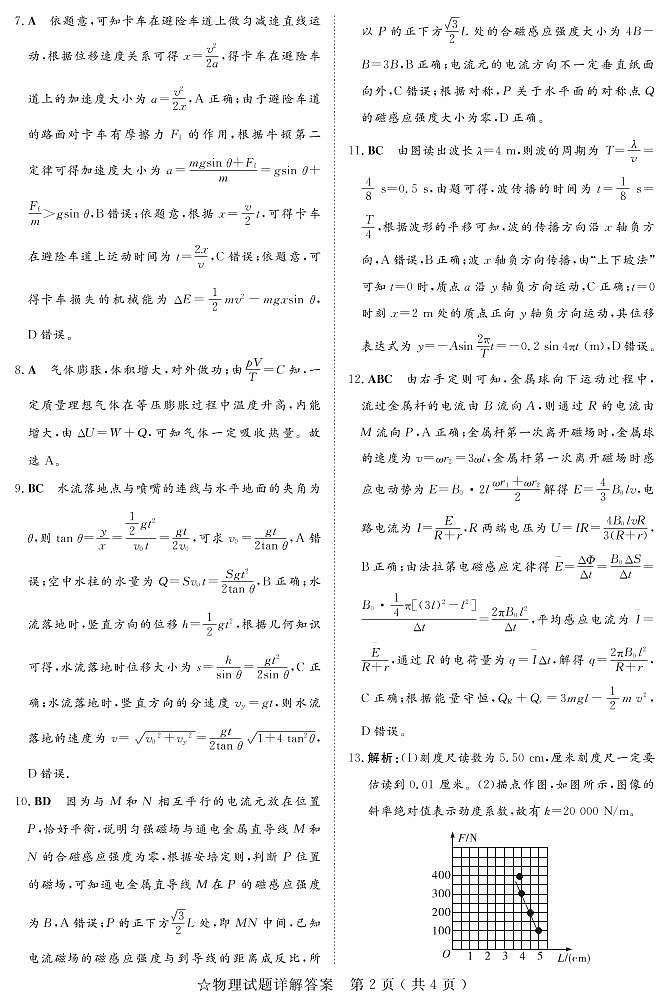 7. A 依题意,可知卡车在避险车道上做匀减速直线运
动,根据位移速度关系可得 x=v²/2a,得卡车在避险车
道上的加速度大小为 a=v²/2x,A 正确;由于避险车道
的路面对卡车有摩擦力 F_f 的作用,根据牛顿第二
定律可得加速度大小为 a=(mgsin θ+F_f)/m=gsin θ+
F_f/m>gsin θ,B错误;依题意,根据 x=v/2 t,可得卡车
在避险车道上运动时间为 t=2x/v,C 错误;依题意,可
得卡车损失的机械能为 ΔE=1/2 mv²-mgxsin θ,
D错误。
8. A 气体膨胀,体积增大,对外做功;由pV/T=C 知,一
定质量理想气体在等压膨胀过程中温度升高,内能
增大,由 ΔU=W+Q,可知气体一定吸收热量。故
选 A。
9. BC 水流落地点与喷嘴的连线与水平地面的夹角为
θ,则 tan θ=y/x=(1/2 gt²)/(v₀t)=gt/2v₀,可求 v₀=gt/(2tan θ),A 错
误;空中水柱的水量为 Q=Sv₀t=Sgt²/(2tan θ),B 正确;水
流落地时,竖直方向的位移 h=1/2 gt²,根据几何知识
可得,水流落地时位移大小为 s=h/sin θ=gt²/(2sin θ),C 正
确;水流落地时,竖直方向的分速度 v_y=gt,则水流
落地的速度为 v=√(v₀²+v_y²)=gt/(2tan θ) √(1+4 tan²θ),
D错误.
10. BD 因为与 M 和 N 相互平行的电流元放在位置
P,恰好平衡,说明匀强磁场与通电金属直导线 M 和
N 的合磁感应强度为零,根据安培定则,判断 P 位置
的磁场,可知通电金属直导线 M 在 P 的磁感应强度
为 B,A 错误;P 的正下方√3/2 L 处,即 MN 中间,已知
电流磁场的磁感应强度与到导线的距离成反比,所
以 P 的正下方√3/2 L 处的合磁感应强度大小为 4B-
B=3B,B 正确;电流元的电流方向不一定垂直纸面
向外,C 错误;根据对称,P 关于水平面的对称点 Q
的磁感应强度大小为零,D 正确。
11. BC 由图读出波长 λ=4 m,则波的周期为 T=λ/v=
4/8 s=0.5 s,由题可得,波传播的时间为 t=1/8 s=
T/4,根据波形的平移可知,波的传播方向沿 x 轴负方
向,A 错误,B正确;波 x 轴负方向传播,由“上下坡法”
可知 t=0 时,质点 a 沿 y 轴负方向运动,C 正确;t=0
时刻 x=2 m 处的质点正向 y 轴负方向运动,其位移
表达式为 y=-Asin 2π/T t=-0.2 sin 4πt (m),D错误。
12. ABC 由右手定则可知,金属球向下运动过程中,
流过金属杆的电流由 B 流向 A,则通过 R 的电流由
M 流向 P,A 正确;金属杆第一次离开磁场时,金属球
的速度为 v=ωr₂=3ωl,金属杆第一次离开磁场时感
应电动势为 E=B₀·2l (ωr₁+ωr₂)/2 解得 E=4/3 B₀lv,电
路电流为 I=E/(R+r),R 两端电压为 U=IR=4B₀lvR/3(R+r),
B正确;由法拉第电磁感应定律得 Ē=ΔΦ/Δt=B₀ΔS/Δt=
B₀·1/4 π[(3l)²-l²]/Δt=2πB₀l²/Δt,平均感应电流为 Ī=
Ē/(R+r),通过 R 的电荷量为 q=ĪΔt,解得 q=2πB₀l²/(R+r),
C 正确;根据能量守恒,Q_R+Q_r=3mgl-1/2 m v²,
D错误。
13. 解析:(1)刻度尺读数为 5.50 cm,厘米刻度尺一定要
估读到 0.01 厘米。(2)描点作图,如图所示,图像的
斜率绝对值表示劲度系数,故有 k=20 000 N/m。
F/N
400
300
200
100
O 1 2 3 4 5 L/(cm)
☆物理试题详解答案 第 2 页(共 4 页)